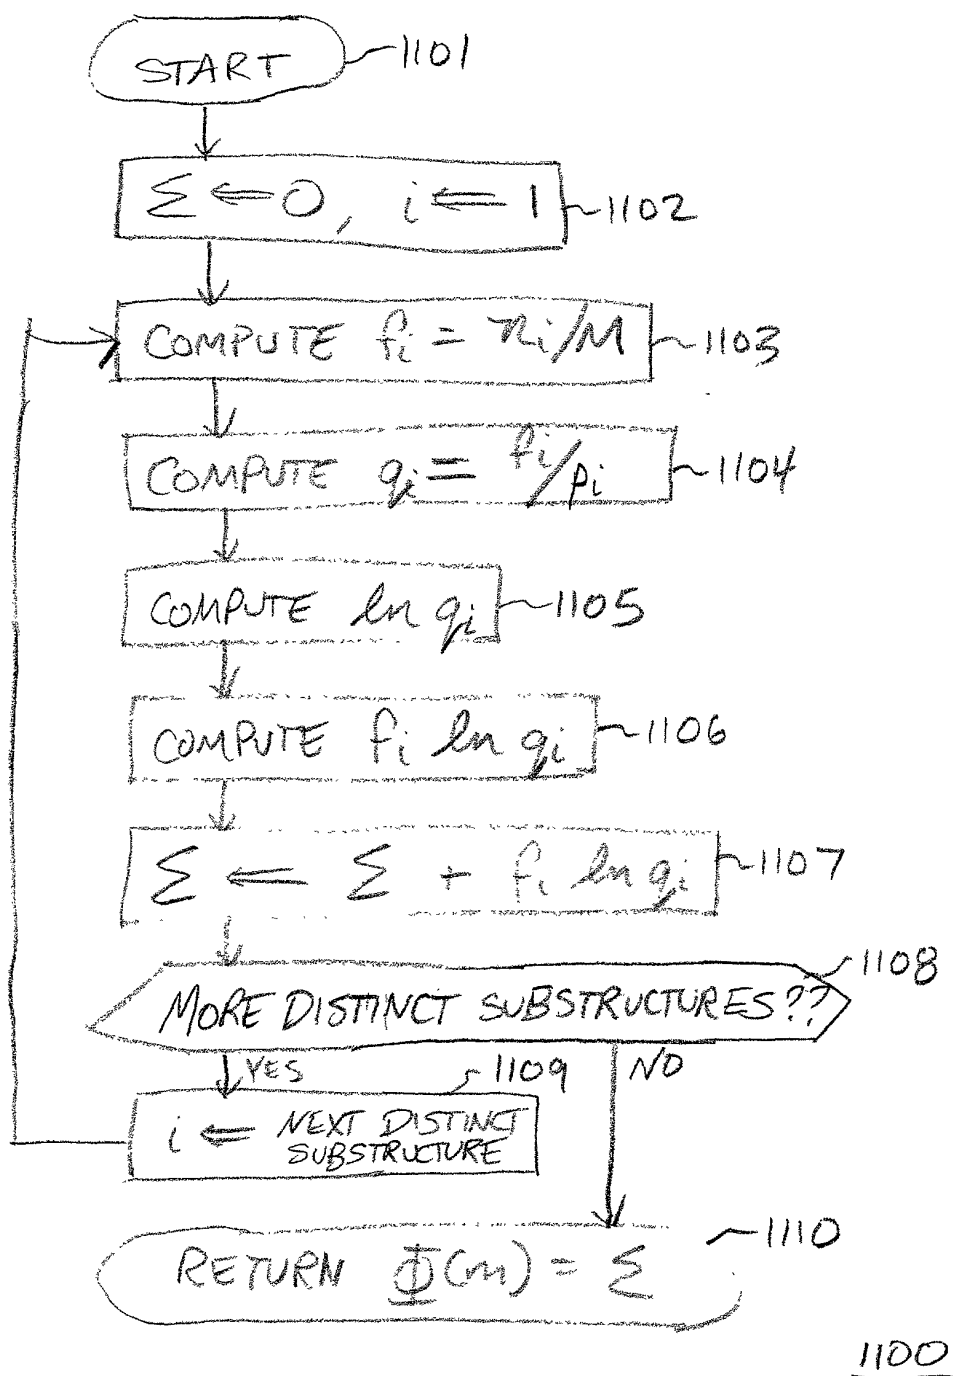 START 1101
Σ ⇐ 0, i ⇐ 1 1102
COMPUTE fi = ni/M 1103
COMPUTE qi = fi/pi 1104
COMPUTE ln qi 1105
COMPUTE fi ln qi 1106
Σ ⇐ Σ + fi ln qi 1107
1108
MORE DISTINCT SUBSTRUCTURES??
YES 1109 NO
i ⇐ NEXT DISTINCT
SUBSTRUCTURE
1110
RETURN Φ(m) = Σ
1100